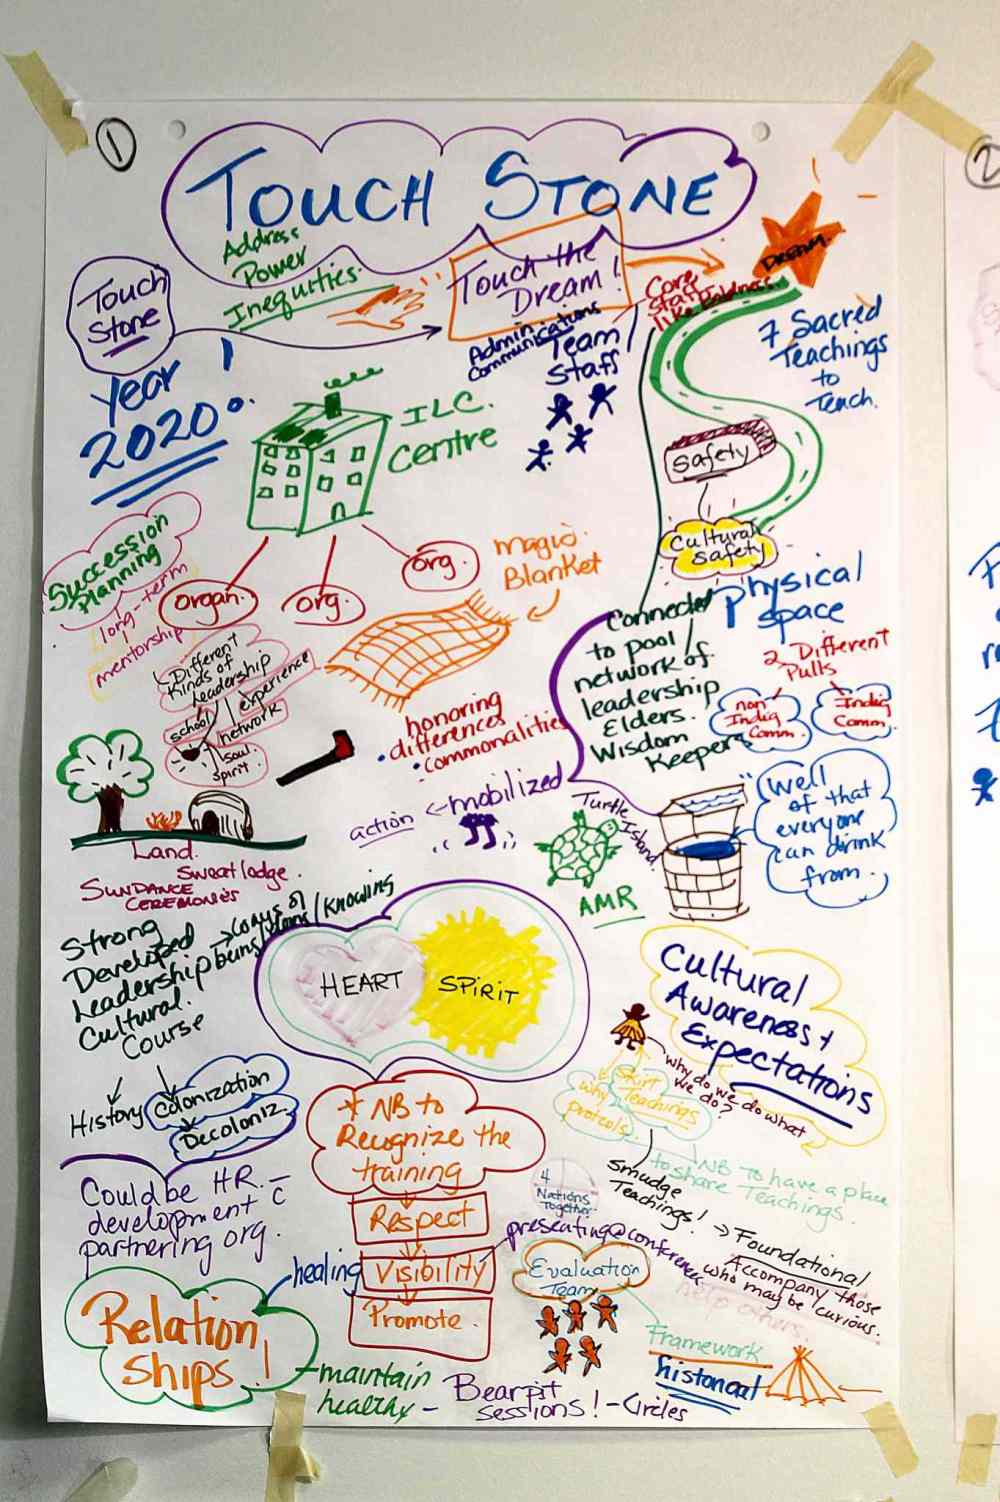 1
2
TOUCH STONE
Address
Power
Inequities.
Touch
Stone
Touch the
Dream!
DREAM.
Core
Staff
like Boldness.
Admin
Communications
Team
Staff
7 Sacred
Teachings
to
Teach.
Year 1
2020.
ILC.
Centre
Safety
Cultural
Safety
Succession
Planning
long-term
mentorship
organ.
org.
org.
magic
Blanket
Different
kinds of
Leadership
experience
school
network
soul
spirit.
Connected
to pool
network of
leadership
Elders.
Wisdom
Keepers
Physical
space
2 Different
Pulls
non
Indig
Comm.
Indig
Comm.
honoring
differences
commonalities
mobilized
action
Turtle
Island.
AMR
Well
of that
everyone
can drink
from.
Land.
Sweatlodge.
SUNDANCE
CEREMONIES
Strong
Developed
Leadership
Cultural.
Course
ways of
being/doing/knowing
HEART
SPIRIT
Cultural
Awareness +
Expectations
why do we do what
we do?
Skirt
Teachings
why
protocols.
History
Colonization
Decoloniz.
* NB to
Recognize the
training
Respect
Visibility
Promote.
NB to have a place
to share Teachings.
smudge
Teachings!
4
Nations
Together.
Could be HR.
development c
partnering org.
presenting@conference
Foundational
Accompany those
who may be curious.
help others.
healing
Evaluation
Team
Relation
ships!
Framework
historical
maintain
healthy -
Bearpit
sessions! - Circles